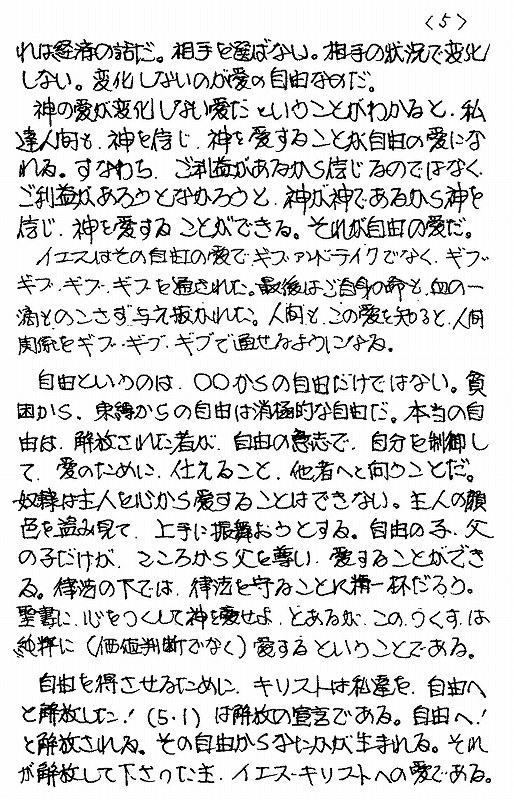 <5>
れは経済の話だ。相手を選ばない。相手の状況で変化
しない。変化しないのが愛の自由なのだ。
神の愛が変化しない愛だということがわかると、私
達人間も、神を信じ、神を愛することが自由の愛にな
れる。すなわち、ご利益があるから信じるのではなく、
ご利益があろうとなかろうと、神が神であるから神を
信じ、神を愛することができる。それが自由の愛だ。
イエスはその自由の愛でギブアンドテイクでなく、ギブ・
ギブ・ギブ・ギブを通された。最後はご自身の命も、血の一
滴とのこさず与え抜かれた。人間も、この愛を知ると、人間
関係をギブ・ギブ・ギブで通せるようになる。
自由というのは、〇〇からの自由だけではない。貧
困から、束縛からの自由は消極的な自由だ。本当の自
由は、解放された者が、自由の意志で、自分を制御し
て、愛のために、仕えること、他者へと向うことだ。
奴隷は主人を心から愛することはできない。主人の顔
色を盗み見て、上手に振舞おうとする。自由の子、父
の子だけが、こころから父を尊い、愛することができ
る。律法の下では、律法を守ることに精一杯だろう。
聖書に、心をつくして神を愛せよ、とあるが、この、つくす、は
純粋に(価値判断でなく)愛するということである。
自由を得させるために、キリストは私達を、自由へ
と解放した!(5・1)は解放の宣言である。自由へ!
と解放される。その自由からなにかが生まれる。それ
が解放して下さった主、イエス・キリストへの愛である。